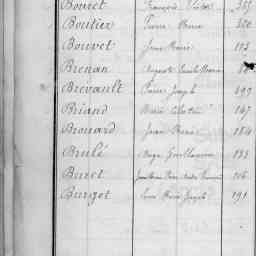 Bouret François Victor 365
Boutier Pierre Marie 320
Bouvet Jean Marie 113
Brenan Auguste
Brevault Pierre Joseph 199
Briand Marie Célestin 147
Brouard Jean Marie 184
Brulé Ange Guillaume 133
Buret Pierre 116
Burgot Louis Marie Joseph 191